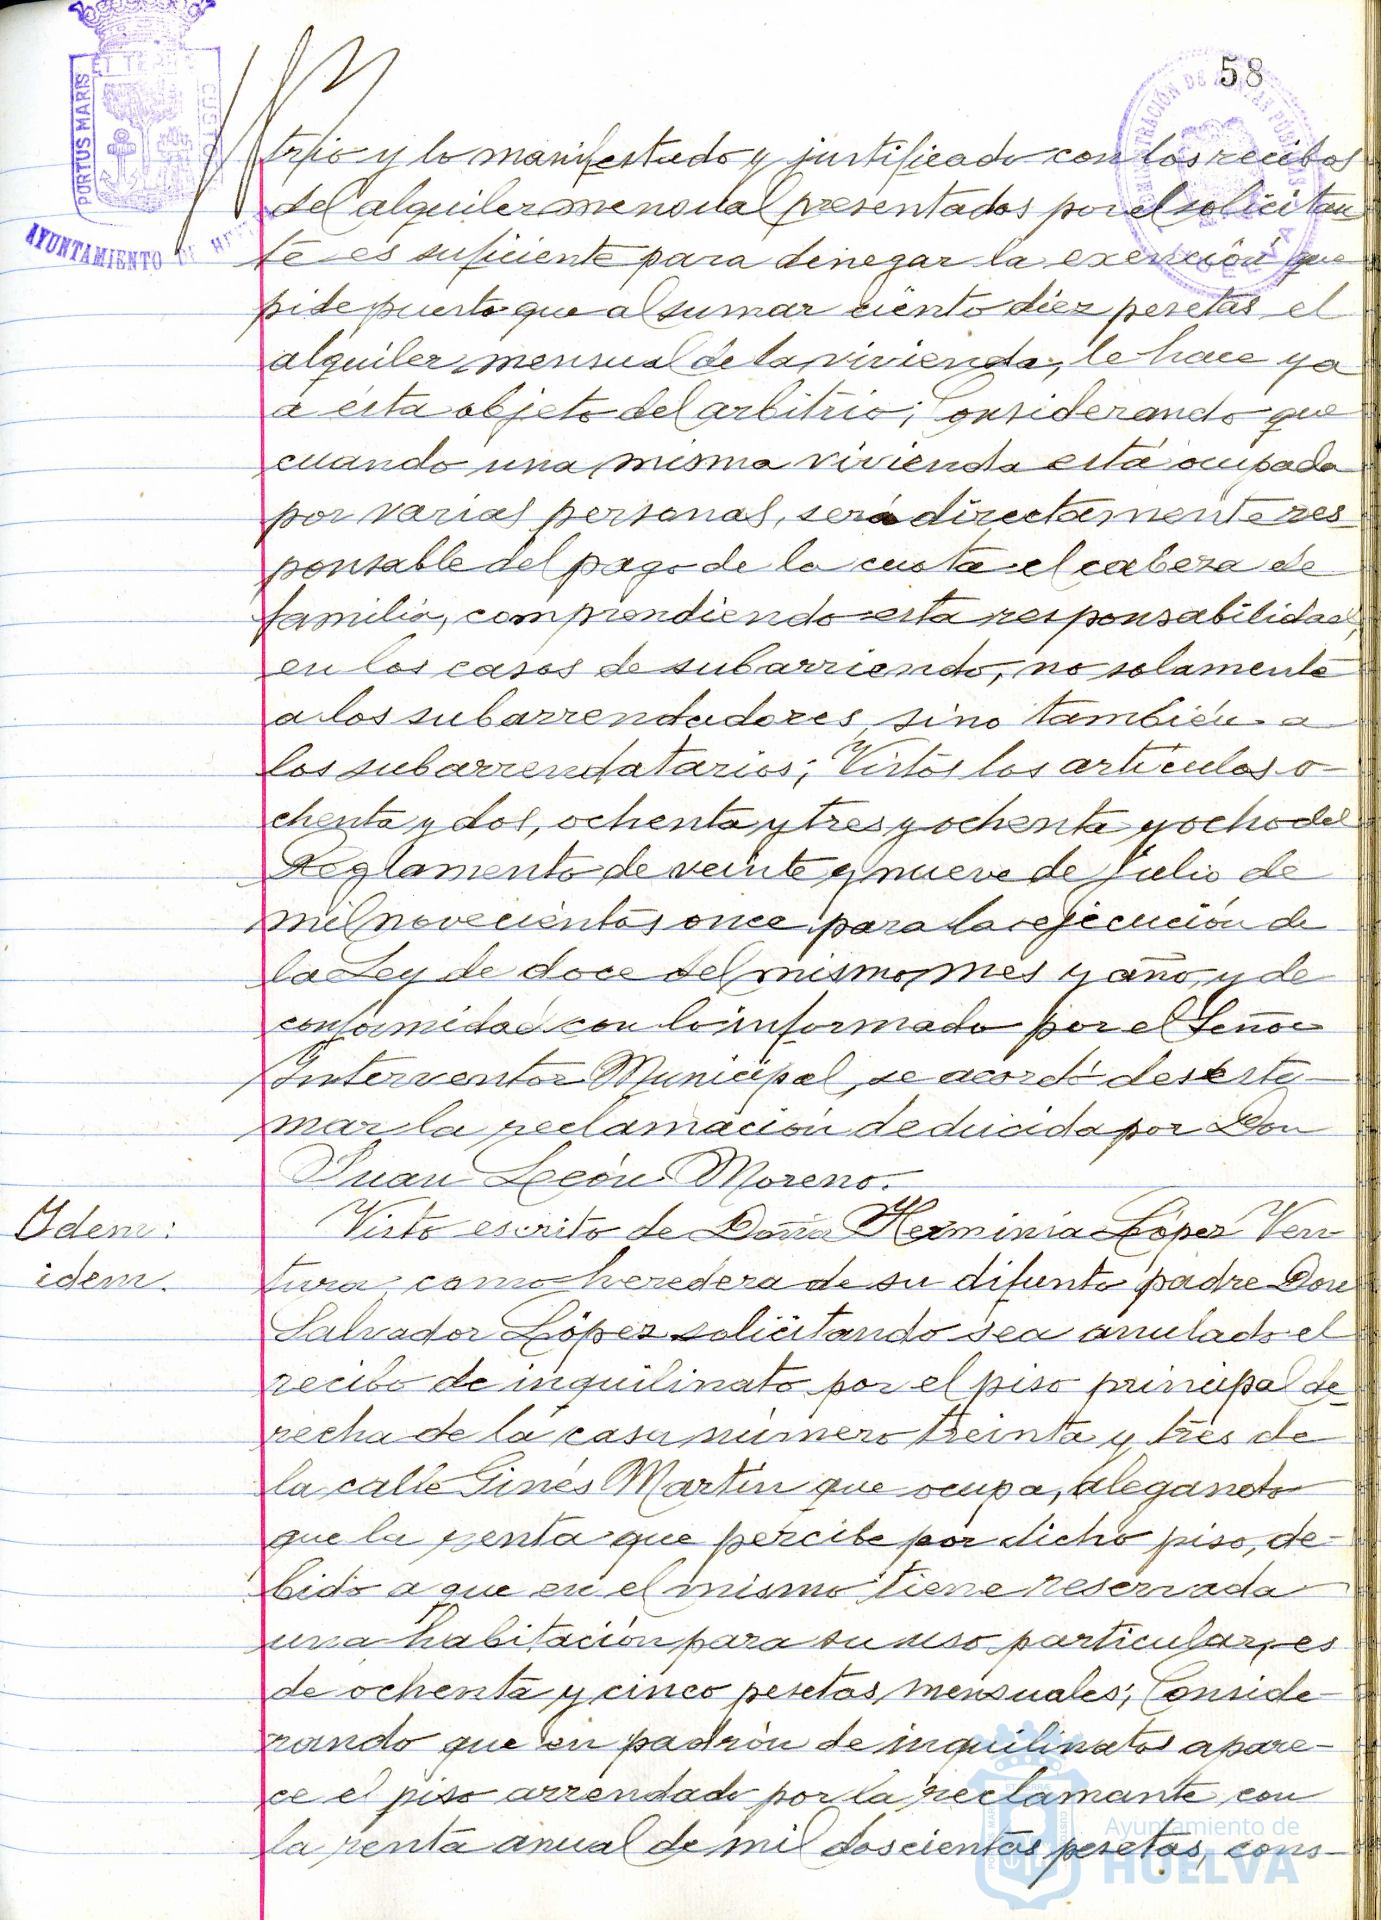 58
PORTUS MARIS ET TERRÆ CUSTO
AYUNTAMIENTO DE
ADMINISTRACIÓN DE RENTAS PÚBLICAS
trio y lo manifestado y justificado con los recibos
del alquiler mensual presentados por el solicitan
te es suficiente para denegar la exención que
pide puesto que al sumar ciento diez pesetas el
alquiler mensual de la vivienda, le hace ya
a ésta objeto del arbitrio; Considerando que
cuando una misma vivienda está ocupada
por varias personas, será directamente res-
ponsable del pago de la cuota el cabeza de
familia, comprendiendo esta responsabilidad,
en los casos de subarriendo, no solamente
a los subarrendadores, sino también a
los subarrendatarios; Vistos los artículos o-
chenta y dos, ochenta y tres y ochenta y ocho del
Reglamento de veinte y nueve de Julio de
mil novecientos once para la ejecución de
la Ley de doce del mismo mes y año, y de
conformidad con lo informado por el Señor
Interventor Municipal, se acordó desesti-
mar la reclamación deducida por Don
Juan León Moreno.
Idem:
idem.
Visto escrito de Doña Herminia López Ven-
tura, como heredera de su difunto padre Don
Salvador López solicitando sea anulado el
recibo de inquilinato por el piso principal de-
recha de la casa número treinta y tres de
la calle Ginés Martín que ocupa, alegando
que la renta que percibe por dicho piso, de-
bido a que en el mismo tiene reservada
una habitación para su uso particular, es
de ochenta y cinco pesetas mensuales; Conside-
rando que en padrón de inquilinatos apare-
ce el piso arrendado por la reclamante con
la renta anual de mil doscientas pesetas, cons-
Ayuntamiento de
HUELVA